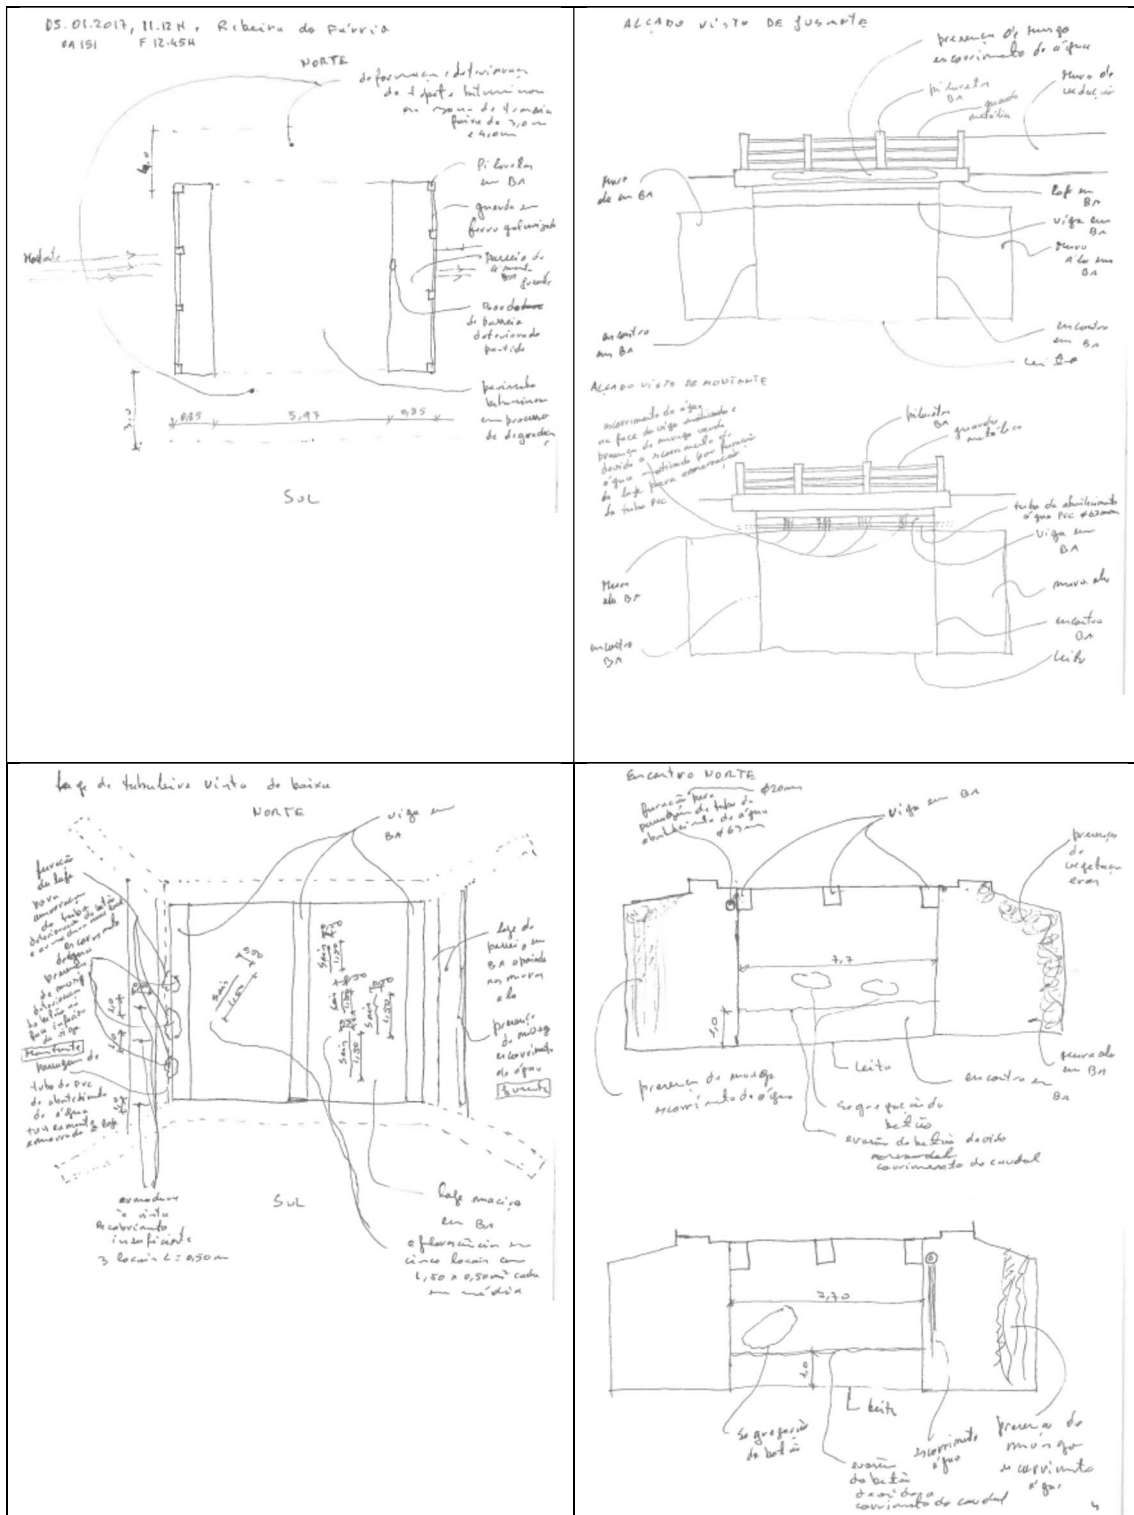 05.01.2017, 11.12H, Ribeira do Párria
OA 151 F 12.45H
NORTE
deformação e deterioração
do tapete bituminoso
na zona de transição
faixa de 3,0m
e 4,0m
4,0
Pilaretes
em BA
guarda em
ferro galvanizado
Montante
passeio de
BA
Jusante
de passeio
deteriorado
partido
pavimento
bituminoso
em processo
de degradação
3,0
0,85
5,97
0,85
SUL
ALÇADO VISTO DE JUSANTE
presença de musgo
escorrimento de água
pilaretes
BA
guarda
metálica
Muro de
vedação
Muro
em BA
laje em
BA
viga em
BA
Muro
ala em
BA
encontro
em BA
encontro
em BA
Leito
ALÇADO VISTO DE MONTANTE
escorrimento de água
na face da viga
presença de musgo verde
devido a escorrimento de
água motivado por furação
da laje para amarração
do tubo PVC
pilaretes
BA
guarda
metálica
tubo de abastecimento
água PVC ϕ63mm
viga em
BA
Muro
ala BA
muro ala
encontro
BA
encontro
BA
leito
Laje de tabuleiro visto de baixo
NORTE
viga em
BA
furação
da laje
para
amarração
do tubo
deterioração do betão
escorrimento
de água
presença
de musgo
deterioração
do betão na
face inferior
da viga
Montante
passagem de
tubo de PVC
de abastecimento
de água
amarrado à laje
laje de
passeio em
BA apoiado
nos muros
ala
presença
de musgo
escorrimento
de água
Jusante
armadura
à vista
recobrimento
insuficiente
3 locais L=0,50m
SUL
laje maciça
em BA
eflorescência em
cinco locais com
1,50 x 0,50m² cada
em média
Encontro NORTE
furação para ϕ20mm
passagem de tubo de
abastecimento de água
ϕ63mm
viga em BA
presença
de
vegetação
eras
7,7
1,0
Leito
encontro em
BA
Muro ala
em BA
presença de musgo
escorrimento de água
segregação do
betão
erosão do betão devido
corrimento do caudal
7,70
1,0
Leito
segregação
do betão
erosão
do betão
devido a
corrimento do caudal
escorrimento
água
presença de
musgo
escorrimento
água
4